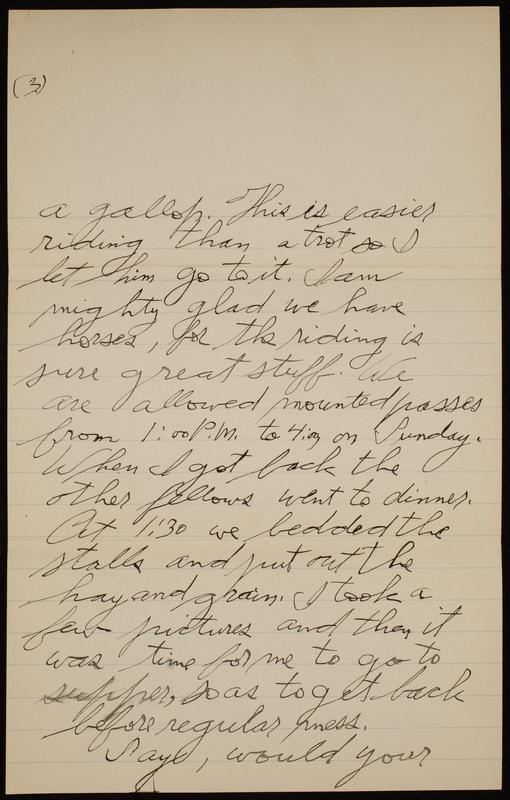 (3)
a gallop. This is easier
riding than a trot so I
let him go to it. I am
mighty glad we have
horses, for the riding is
sure great stuff. We
are allowed mounted passes
from 1:00 P.M. to 4:00 on Sunday.
When I got back the
other fellows went to dinner.
At 1:30 we bedded the
stalls and put out the
hay and grain. I took a
few pictures and then it
was time for me to go to
supper, so as to get back
before regular mess.
Say, would your